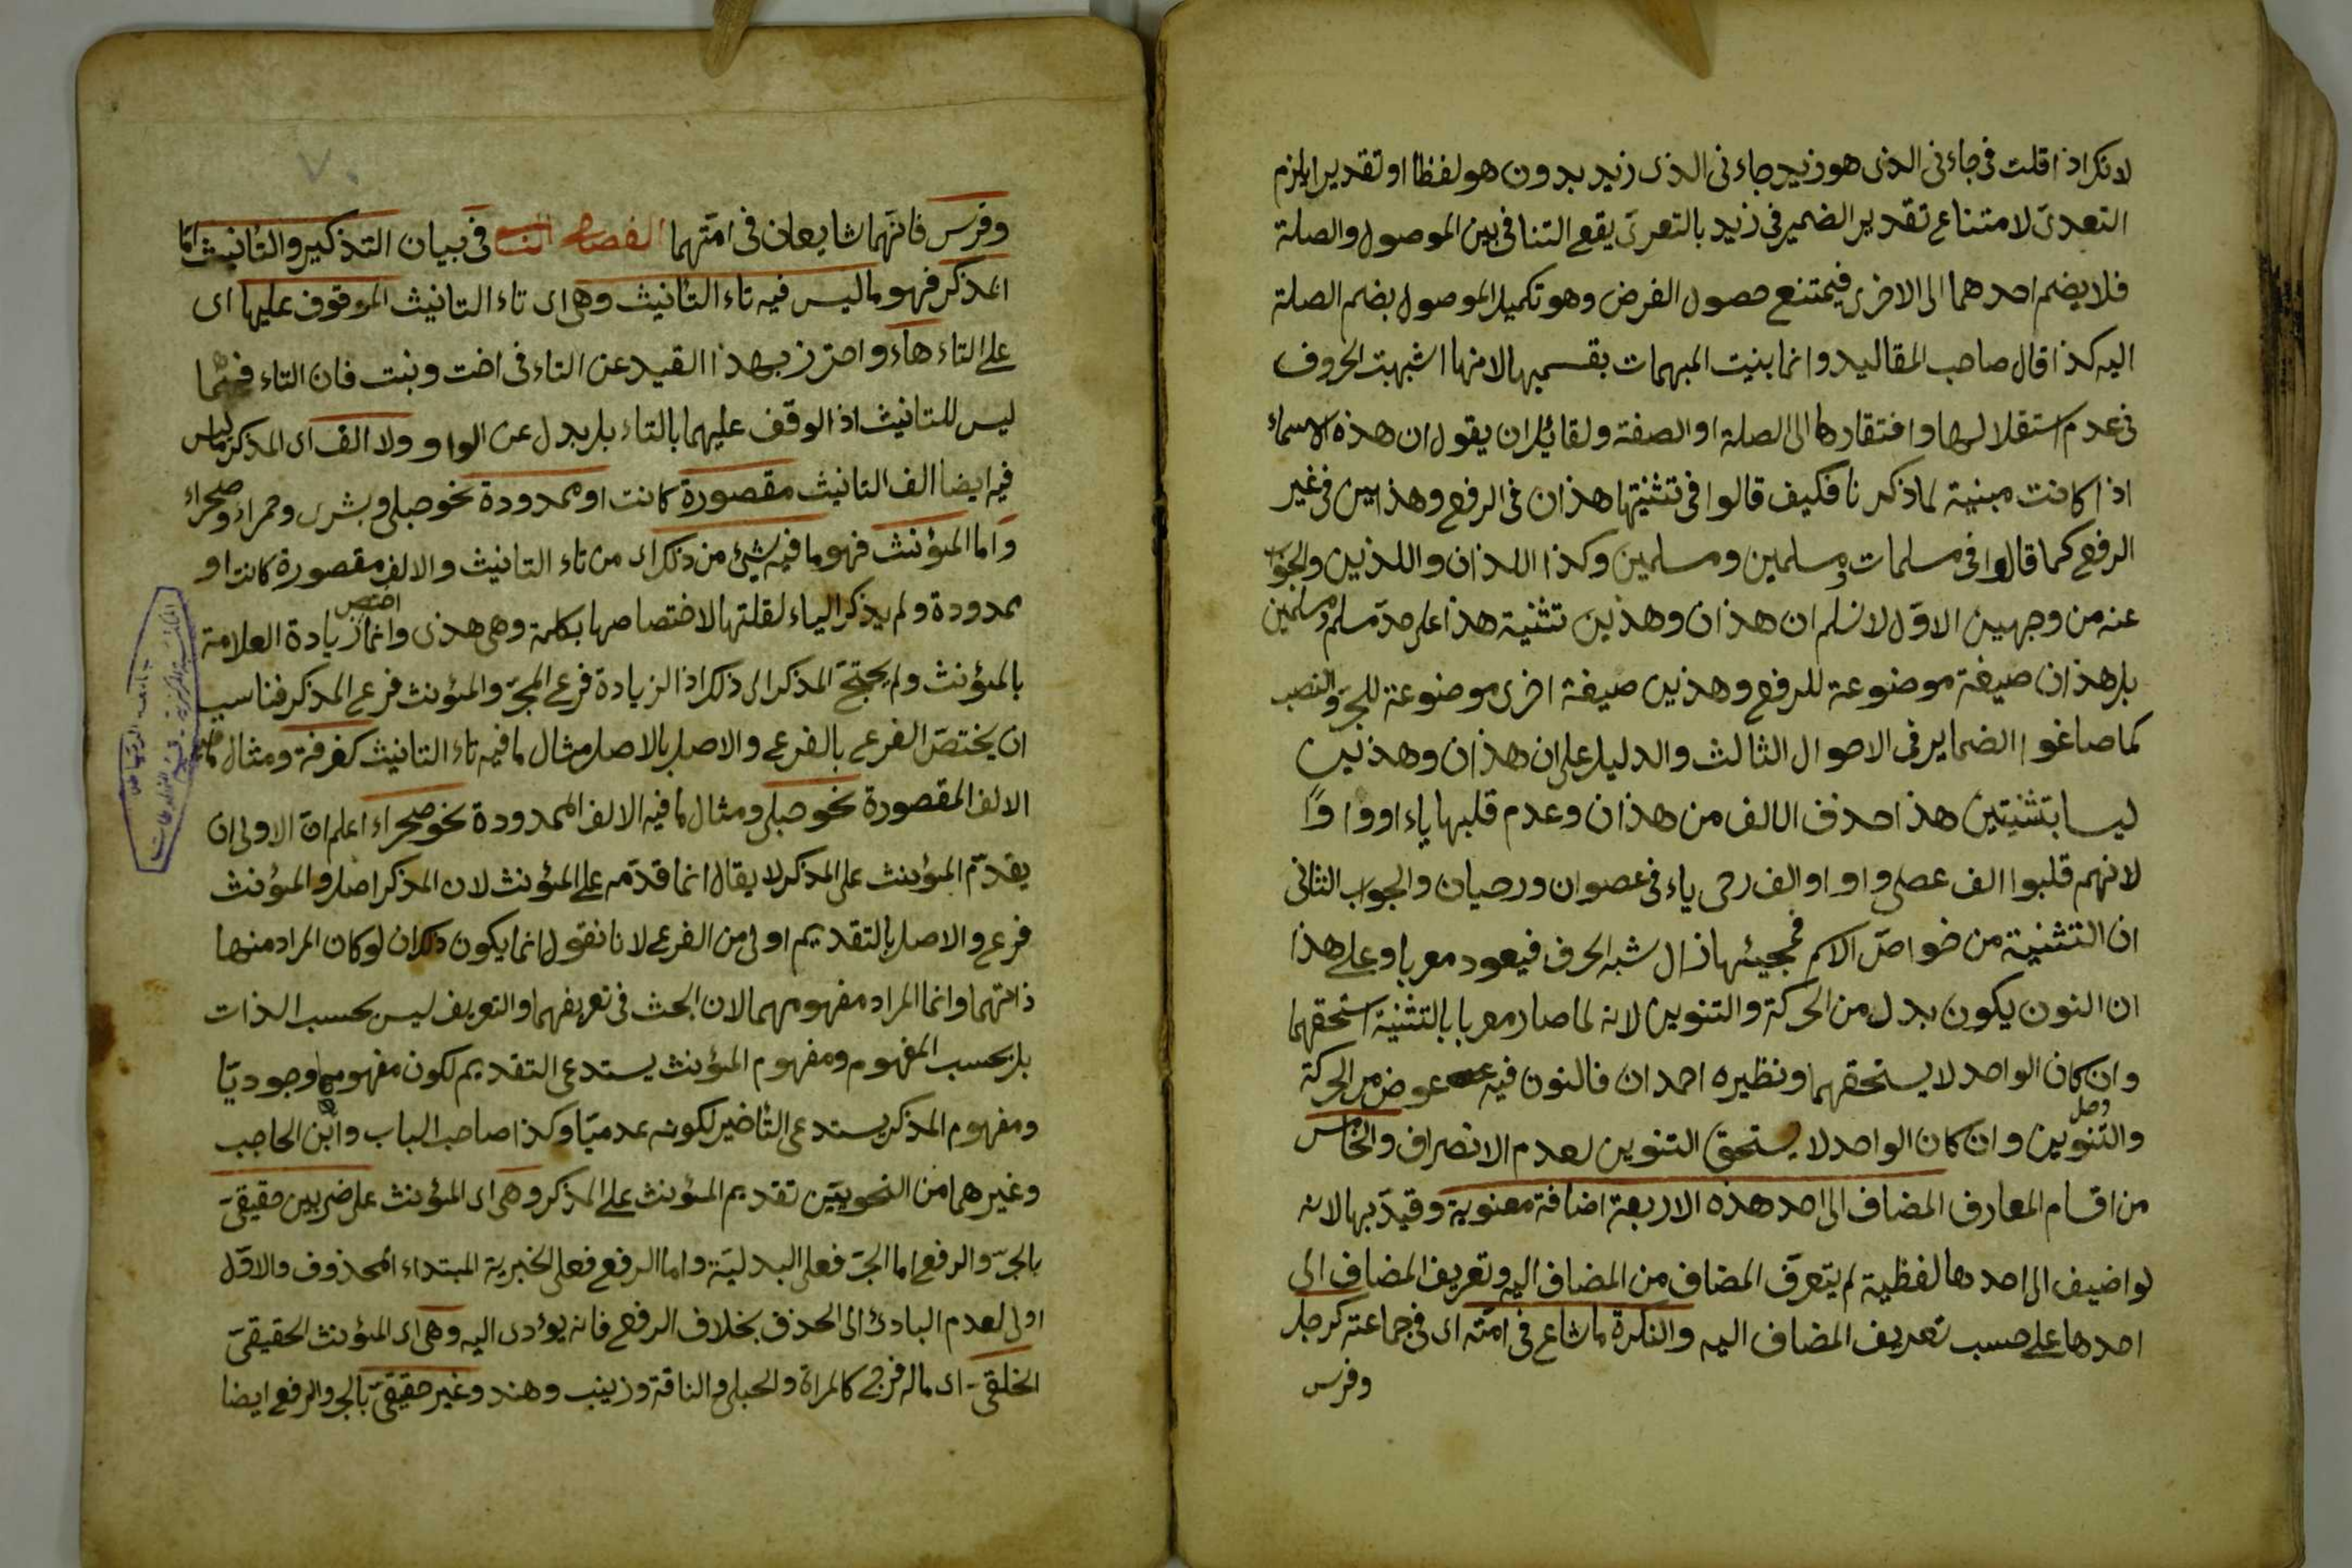 لانك اذا قلت فى جاءنى الذى هو زيد جاءنى الذى زيد بدون هو لفظا او تقديرا يلزم
التعدى لامتناع تقدير الضمير فى زيد بالتعرى يقع التنافى بين الموصول والصلة
فلا يضم احدهما الى الاخرى فيمتنع حصول الغرض وهو تكميل الموصول بضم الصلة
اليه كذا قال صاحب المقاليد وانما بنيت المبهمات بقسميها لانها اشبهت الحروف
فى عدم استقلالها وافتقارها الى الصلة او الصفة ولقائل ان يقول ان هذه الاسماء
اذا كانت مبنية لما ذكرنا فكيف قالوا فى تثنيتها هذان فى الرفع وهذين فى غير
الرفع كما قالوا فى مسلمات ومسلمين ومسلمين وكذا اللذان واللذين والجواب
عنه من وجهين الاوّل لا نسلم ان هذان وهذين تثنية هذا على حدّ مسلم ومسلمين
بل هذان صيغة موضوعة للرفع وهذين صيغة اخرى موضوعة للجرّ والنصب
كما صاغوا الضماير فى الاحوال الثالث والدليل على ان هذان وهذين
ليسا بتثنيتين هذا حذف الالف من هذان وعدم قلبها ياء او واوًا
لانهم قلبوا الف عصى واوا والف رحى ياء فى عصوان ورحيان والجواب الثانى
ان التثنية من خواصّ الاسم فمجيئها زال شبه الحرف فيعود معربا وعلى هذا
ان النون يكون بدل من الحركة والتنوين لانه لما صار معربا بالتثنية استحقهما
وان كان الواحد لا يستحقهما ونظيره احمدان فالنون فيه عوض من الحركة
والتنوين وان كان الواحد لا يستحق التنوين لعدم الانصراف والخامس
من اقسام المعارف المضاف الى احد هذه الاربعة اضافة معنوية وقيدّ بها لانه
لو اضيف الى احدها لفظية لم يتعرّف المضاف من المضاف اليه وتعريف المضاف الى
احدها على حسب تعريف المضاف اليه والنكرة ما شاع فى امّته اى فى جماعته كرجل
وفرس
وفرس فانّهما شايعان فى امّتهما الفصل فى بيان التذكير والتأنيث امّا
المذكر فهو ما ليس فيه تاء التأنيث وهى اى تاء التانيث الموقوف عليها اى
على التاء هاء واحترز بهذا القيد عن التاء فى اخت وبنت فان التاء فيهما
ليس للتانيث اذ الوقف عليهما بالتاء بل بدل عن الواو ولا الف اى المذكر ما ليس
فيه ايضا الف التانيث مقصورة كانت او ممدودة نحو حبلى وبشرى وحمراء وصحراء
واما المؤنث فهو ما فيه شيئ من ذلك اى من تاء التانيث والالف مقصورة كانت او
ممدودة ولم يذكر الياء لقلتها لاختصاصها بكلمة وهى هذى وانما اختص زيادة العلامة
بالمؤنث ولم يحتجّ المذكر الى ذلك اذ الزيادة فرع المجرّد والمؤنث فرع المذكر فناسب
ان يختصّ الفرع بالفرع والاصل بالاصل مثال ما فيه تاء التانيث كغرفة ومثال ما فيه
الالف المقصورة نحو حبلى ومثال ما فيه الالف الممدودة نحو صحراء اعلم انّ الاولى ان
يقدّم المؤنث على المذكر لا يقال انما قدّمه على المؤنث لان المذكر اصل والمؤنث
فرع والاصل بالتقديم اولى من الفرع لانا نقول انما يكون ذلك ان لو كان المراد منها
ذاتهما وانما المراد مفهومهما لان البحث فى تعريفهما والتعريف ليس بحسب الذات
بل بحسب المفهوم ومفهوم المؤنث يستدعى التقديم لكون مفهومها وجوديّا
ومفهوم المذكر يستدعى التأخير لكونه عدميّا وكذا صاحب الباب وابن الحاجب
وغيرهما من النحويين تقديم المؤنث على المذكر وهى اى المؤنث على ضربين حقيقىّ
بالجرّ والرفع اما الجرّ فعلى البدليّة واما الرفع فعلى الخبرية المبتداء المحذوف والاوّل
اولى لعدم البادئ الى الحذف بخلاف الرفع فانه يؤدى اليه وهى اى المؤنث الحقيقىّ
الخلقىّ اى ما له فرج كالمراة والحبلى والناقة وزينب وهند وغير حقيقىّ بالجر والرفع ايضا